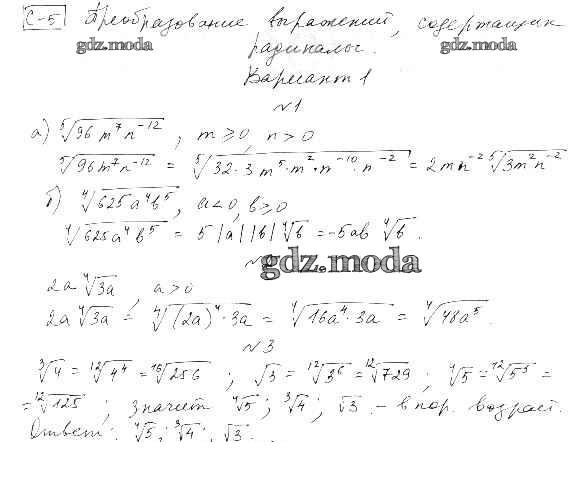 С-5 Преобразование выражений, содержащих
gdz.moda gdz.moda
радикалы.
Вариант 1
№1
а) ⁵√(96m⁷n⁻¹²), m ≥ 0, n > 0
⁵√(96m⁷n⁻¹²) = ⁵√(32·3m⁵·m²·n⁻¹⁰·n⁻²) = 2mn⁻² ⁵√(3m²n⁻²)
б) ⁴√(625a⁴b⁵), a < 0, b ≥ 0
⁴√(625a⁴b⁵) = 5|a||b| ⁴√b = -5ab ⁴√b.
gdz.moda
2a ⁴√(3a), a > 0
2a ⁴√(3a) = ⁴√((2a)⁴·3a) = ⁴√(16a⁴·3a) = ⁴√(48a⁵).
№3
³√4 = ¹²√(4⁴) = ¹²√256; √3 = ¹²√(3⁶) = ¹²√729; ⁴√5 = ¹²√(5³) =
= ¹²√125; значит ⁴√5; ³√4; √3. - в пор. возраст.
Ответ: ⁴√5; ³√4; √3.